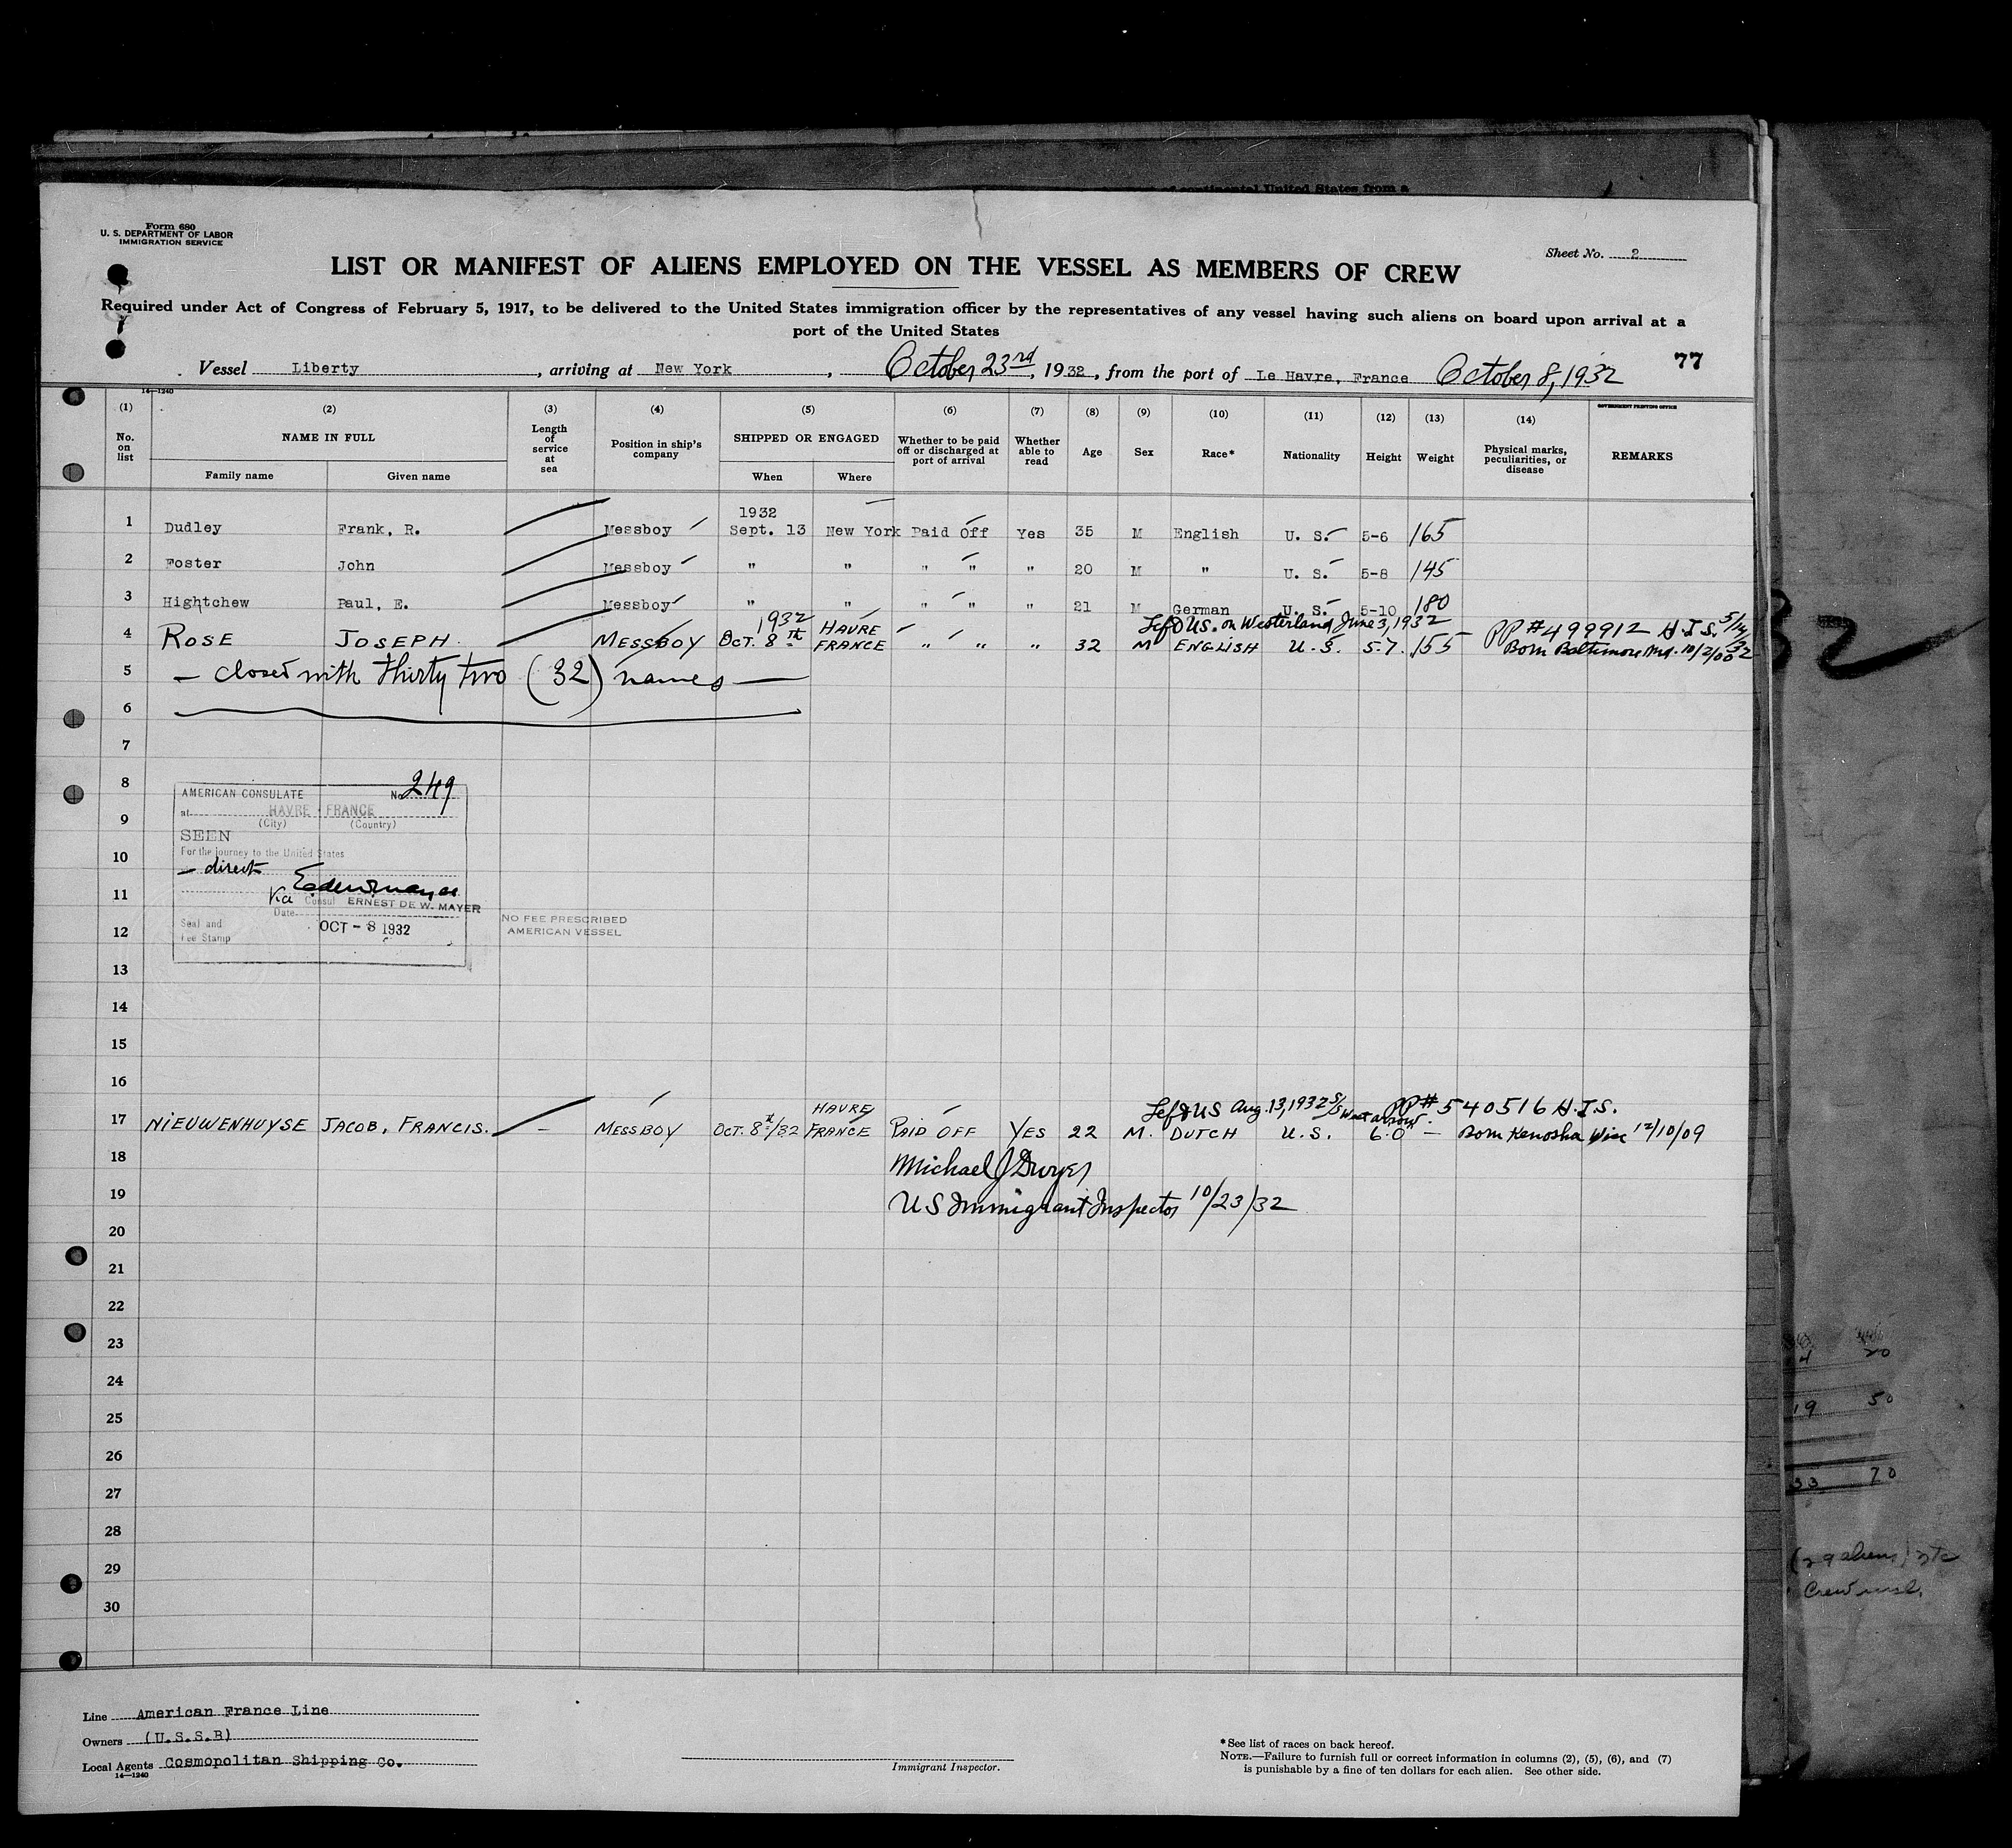 of continental United States from a
Form 680
U. S. DEPARTMENT OF LABOR
IMMIGRATION SERVICE
Sheet No. 2
LIST OR MANIFEST OF ALIENS EMPLOYED ON THE VESSEL AS MEMBERS OF CREW
Required under Act of Congress of February 5, 1917, to be delivered to the United States immigration officer by the representatives of any vessel having such aliens on board upon arrival at a
port of the United States
Vessel Liberty, arriving at New York, October 23rd, 1932, from the port of Le Havre, France October 8, 1932 77
14—1240
GOVERNMENT PRINTING OFFICE
(1) (2) (3) (4) (5) (6) (7) (8) (9) (10) (11) (12) (13) (14)
No. on list NAME IN FULL Length of service at sea Position in ship's company SHIPPED OR ENGAGED Whether to be paid off or discharged at port of arrival Whether able to read Age Sex Race* Nationality Height Weight Physical marks, peculiarities, or disease REMARKS
Family name Given name When Where
1932
1 Dudley Frank, R. Messboy Sept. 13 New York Paid Off Yes 35 M English U. S. 5-6 165
2 Foster John Messboy " " " " " 20 M " U. S. 5-8 145
3 Hightchew Paul, E. Messboy " " " " " 21 M German U. S. 5-10 180
1932 HAVRE Left US. on Westerland June 3, 1932 PP #499912 H.I.S. 5/14/32
4 ROSE JOSEPH. MESSBOY OCT. 8th FRANCE " " " " 32 M ENGLISH U.S. 5-7. 155 Born Baltimore Md. 10/2/00
5 — closed with thirty two (32) names —
6
7
8
AMERICAN CONSULATE No. 249
9
at HAVRE - FRANCE
(City) (Country)
SEEN
10
For the journey to the United States
— direct
11
Vice Consul ERNEST DE W. MAYER
Date
12
Seal and
Fee Stamp
OCT - 8 1932
NO FEE PRESCRIBED
AMERICAN VESSEL
13
14
15
16
HAVRE Left US Aug. 13, 1932 S/S West Arrow PP# 540516 H.I.S.
17 NIEUWENHUYSE JACOB, FRANCIS. — MESSBOY OCT. 8th/32 FRANCE PAID OFF YES 22 M. DUTCH U.S. 6.0 — Born Kenosha Wisc 12/10/09
18 Michael J Dwyer
19 US Immigrant Inspector 10/23/32
20
21
22
23
24
25
26
27
28
29
30
4 20
19 50
33 70
Line American France Line
Owners (U.S.S.B)
Local Agents Cosmopolitan Shipping Co.
14—1240
Immigrant Inspector.
*See list of races on back hereof.
NOTE.—Failure to furnish full or correct information in columns (2), (5), (6), and (7)
is punishable by a fine of ten dollars for each alien. See other side.